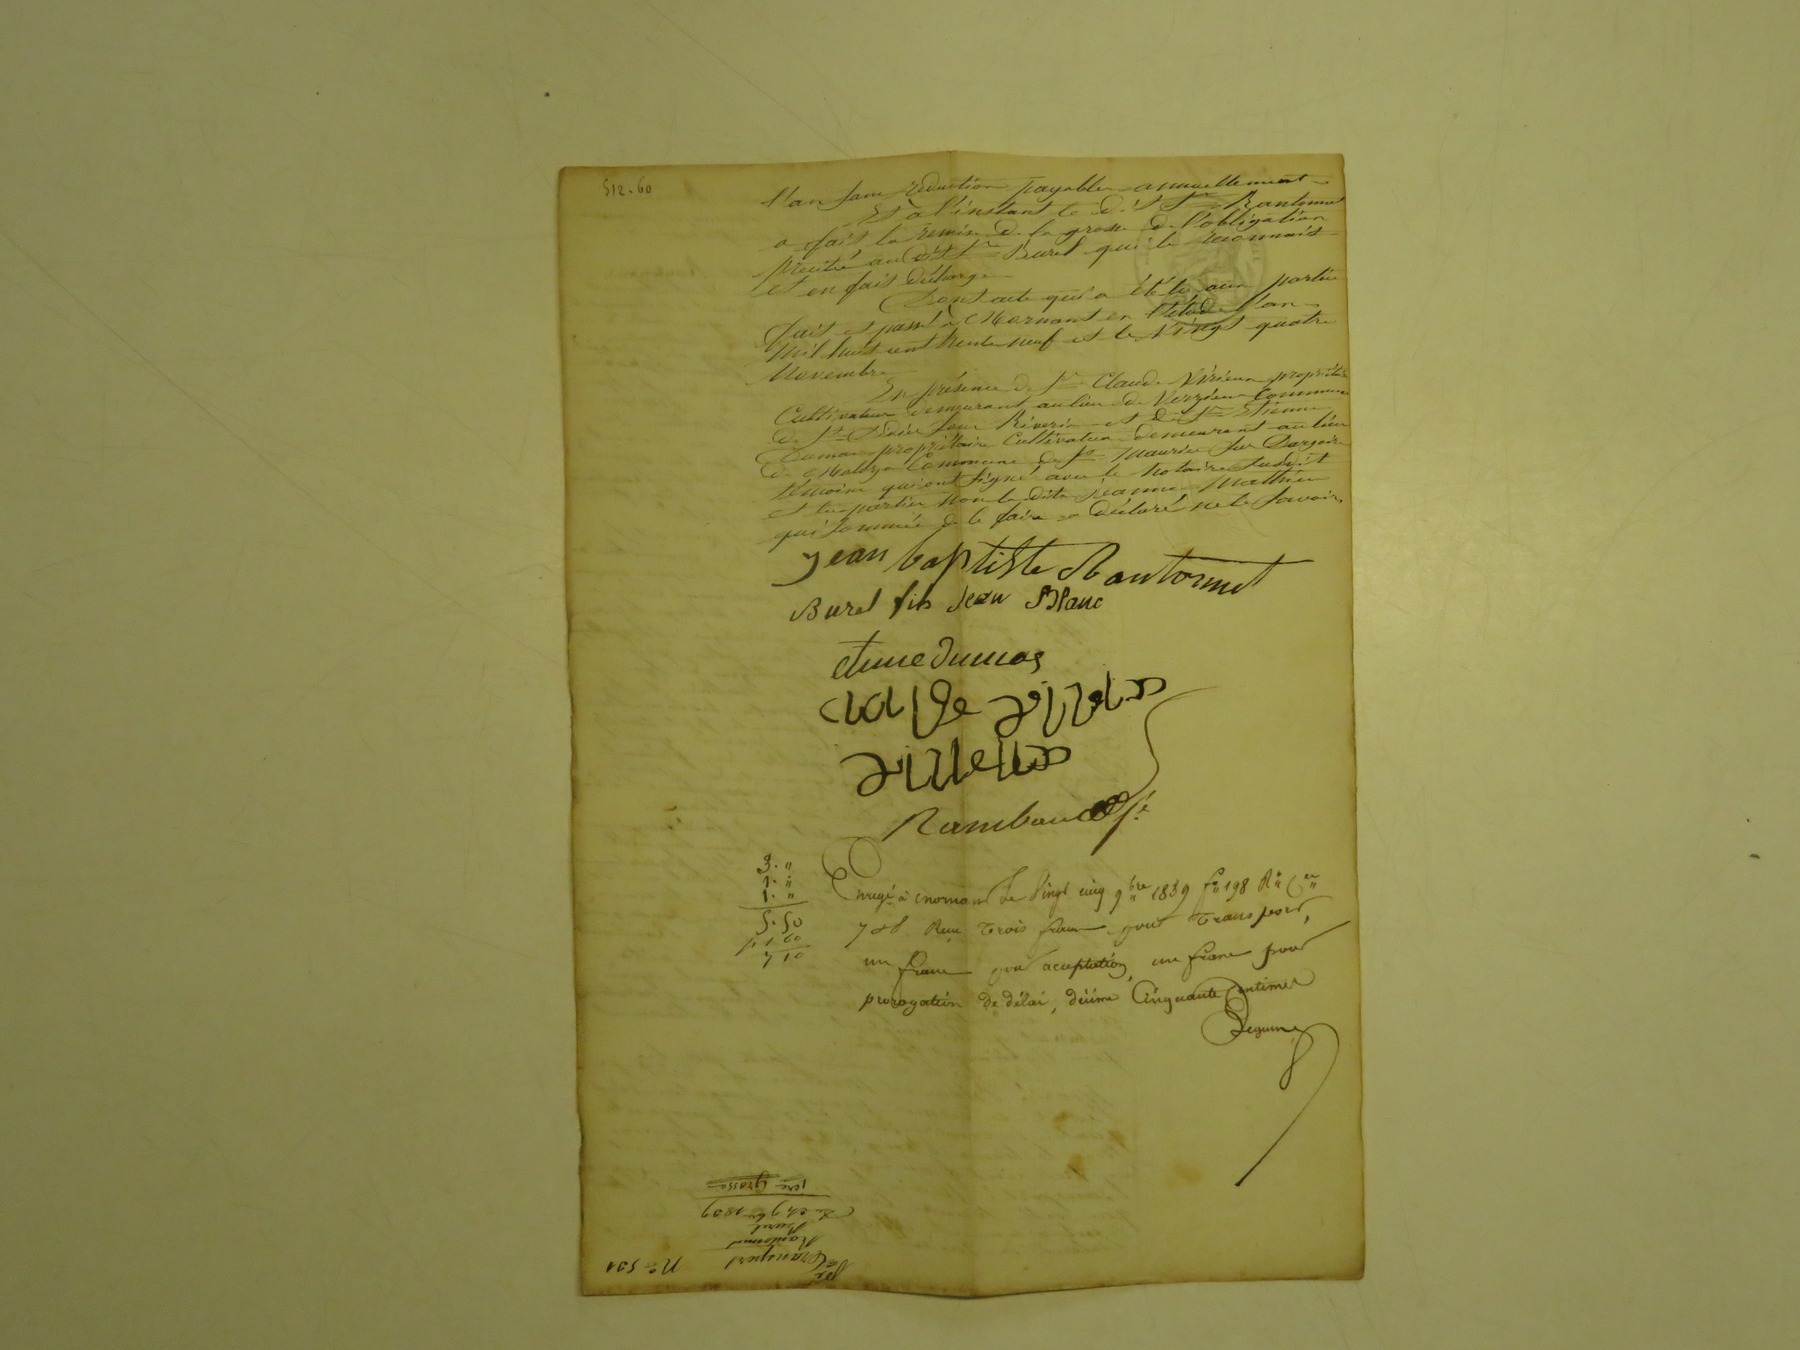 512.60
l'an sans réduction payable annuellement
Et à l'instant le dit Sr Rantonnet
a fait la remise de la grosse de l'obligation
précitée au dit Sr Burel qui le reconnait
et en fait décharge
Dont acte qui a été lu aux parties
fait et passé à Mornant en l'étude l'an
Mil huit cent trente neuf et le Vingt quatre
Novembre
En présence de Sr Claude Virieux propriétaire
Cultivateur demeurant au lieu de Commune
de St Didier sous Riverie et de Sr Etienne
Dumas propriétaire Cultivateur demeurant au lieu
de Commune de St Maurice sur Dargoire
témoins qui ont signé avec le Notaire susdit
et les parties non la dite Jeanne Mathieu
qui sommée de le faire a déclaré ne le savoir.
jean baptiste Rantonnet
Burel fils jean Blanc
etiene dumas
claude
Rambaud
3. "
1. "
1. "
5. 50
1. 60
7 10
Enregé à mornant Le Vingt cinq 9bre 1839 fo 198 Ro Cer
7 & 8 Reçu trois francs pour transport,
un franc pour acceptation, un franc pour
prorogation de délai, décime Cinquante Centimes
1ère Grosse
Du 24 9bre 1839
Burel
Rantonnet
Transport
No 501